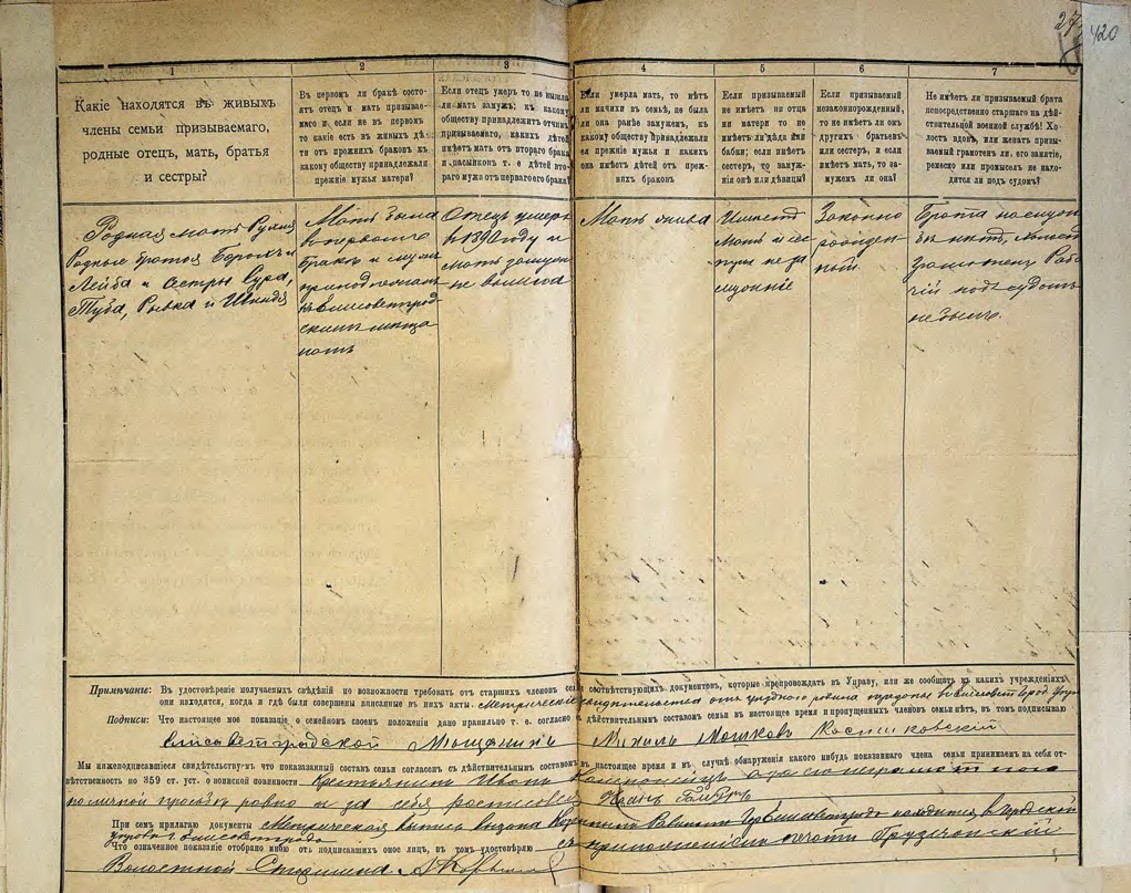 27
420
1
2
3
4
5
6
7
Какіе находятся въ живыхъ
члены семьи призываемаго,
родные отецъ, мать, братья
и сестры?
Въ первомъ ли бракѣ состо-
ятъ отецъ и мать призывае-
маго и если не въ первомъ
то какіе есть въ живыхъ дѣ-
ти отъ прежнихъ браковъ къ
какому обществу принадлежали
прежніе мужья матери?
Если отецъ умеръ то не вышла
ли мать замужъ; къ какому
обществу принадлежитъ отчимъ
призываемаго, какихъ дѣтей
имѣетъ мать отъ втораго брака
и пасынковъ т. е дѣтей вто-
раго мужа отъ перваго его брака?
Если умерла мать, то нѣтъ
ли мачихи въ семьѣ, не была
ли она ранѣе замужемъ, къ
какому обществу принадлежали
ея прежніе мужья и какихъ
она имѣетъ дѣтей отъ преж-
нихъ браковъ
Если призываемый
не имѣетъ ни отца
ни матери то не
имѣетъ ли дѣда или
бабки; если имѣетъ
сестеръ, то замуж-
нія онѣ или дѣвицы?
Если призываемый
незаконнорожденный,
то не имѣетъ ли онъ
другихъ братьевъ
или сестеръ, и если
имѣетъ мать, то за-
мужемъ ли она?
Не имѣетъ ли призываемый брата
непосредственно старшаго на дѣй-
ствительной военной службѣ? Хо-
лостъ вдовъ, или женатъ призы-
ваемый грамотенъ ли. его занятіе,
ремесло или промыселъ не нахо-
дится ли подъ судомъ?
Родная мать Рухля
Родные братья Борохъ и
Лейба и Сестры Сура,
Туба, Рывка и
Мать была
въ первомъ
бракѣ и мужъ
принадлежалъ
къ Елисаветград
скимъ мѣща
намъ
Отецъ умеръ
въ 1890 году и
мать замужъ
не вышла
Мать жива
Имѣетъ
мать и сес
тры не за
мужніе
Законно
рожден
ный
Брата на служ
бѣ нѣтъ, холостъ
Грамотенъ Рабо
чій подъ судомъ
не былъ.
Примѣчаніе: Въ удостовѣреніе получаемыхъ свѣдѣній по возможности требовать отъ старшихъ членовъ семьи соотвѣтствующихъ документовъ, которые препровождать въ Управу, или же сообщать въ какихъ учрежденіяхъ
они находятся, когда и гдѣ были совершены вписанные въ нихъ акты. Метрическіе свидѣтельства отъ уѣзднаго равина переданы въ Елисавет Город Управ
Подписи: Что настоящее мое показаніе о семейномъ своемъ положеніи дано правильно т. е. согласно съ дѣйствительнымъ составомъ семьи въ настоящее время и пропущенныхъ членовъ семьи нѣтъ, въ томъ подписываю
Елисаветградской Мѣщанинъ Михаль Мошковъ
Мы нижеподписавшіеся свидѣтельствуемъ что показанный составъ семьи согласенъ съ дѣйствительнымъ составомъ въ настоящее время и въ случаѣ обнаруженія какого нибудь показаннаго члена семьи принимаемъ на себя от-
вѣтственность по 359 ст. уст. о воинской повинности Крестьянинъ Иванъ а за неграмотнаго
по личной просьбѣ равно и за себя росписовся
При семъ прилагаю документы Метрическая Выпись выдана Равиномъ находится въ Городской
Управѣ г. Елисаветграда
Что означенное показаніе отобрано мною отъ подписавшихъ оное лицъ, въ томъ удостовѣряю съ приложеніемъ печати Грузчанскій
Волостной Старшина